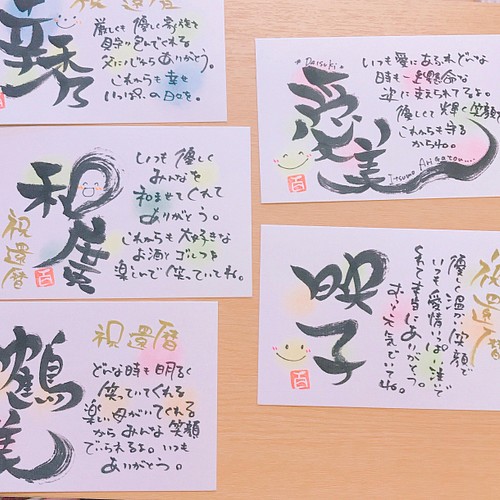 幸秀
厳しくも優しく家族を
包んでくれる
父に心からありがとう。
これからも幸せ
いっぱいの日々を。
和廣
祝還暦
いつも優しく
みんなを
和ませてくれて
ありがとう。
これからも大好きな
お酒とゴルフを
楽しんで笑っていてね。
鶴美
祝還暦
どんな時も明るく
笑っていてくれる
楽しい母がいてくれる
からみんな笑顔
でいられるよ。いつも
ありがとう。
Daisuki
愛美
いつも愛にあふれどんな
時も一生懸命な
支えられてるよ。
優しくて輝く笑顔
これからも守る
からね。
Itsumo Arigatou
映子
祝還暦
優しく温かい笑顔で
いつも愛情いっぱい注いで
くれて本当にありがとう。
ずっと元気でいて
ね。